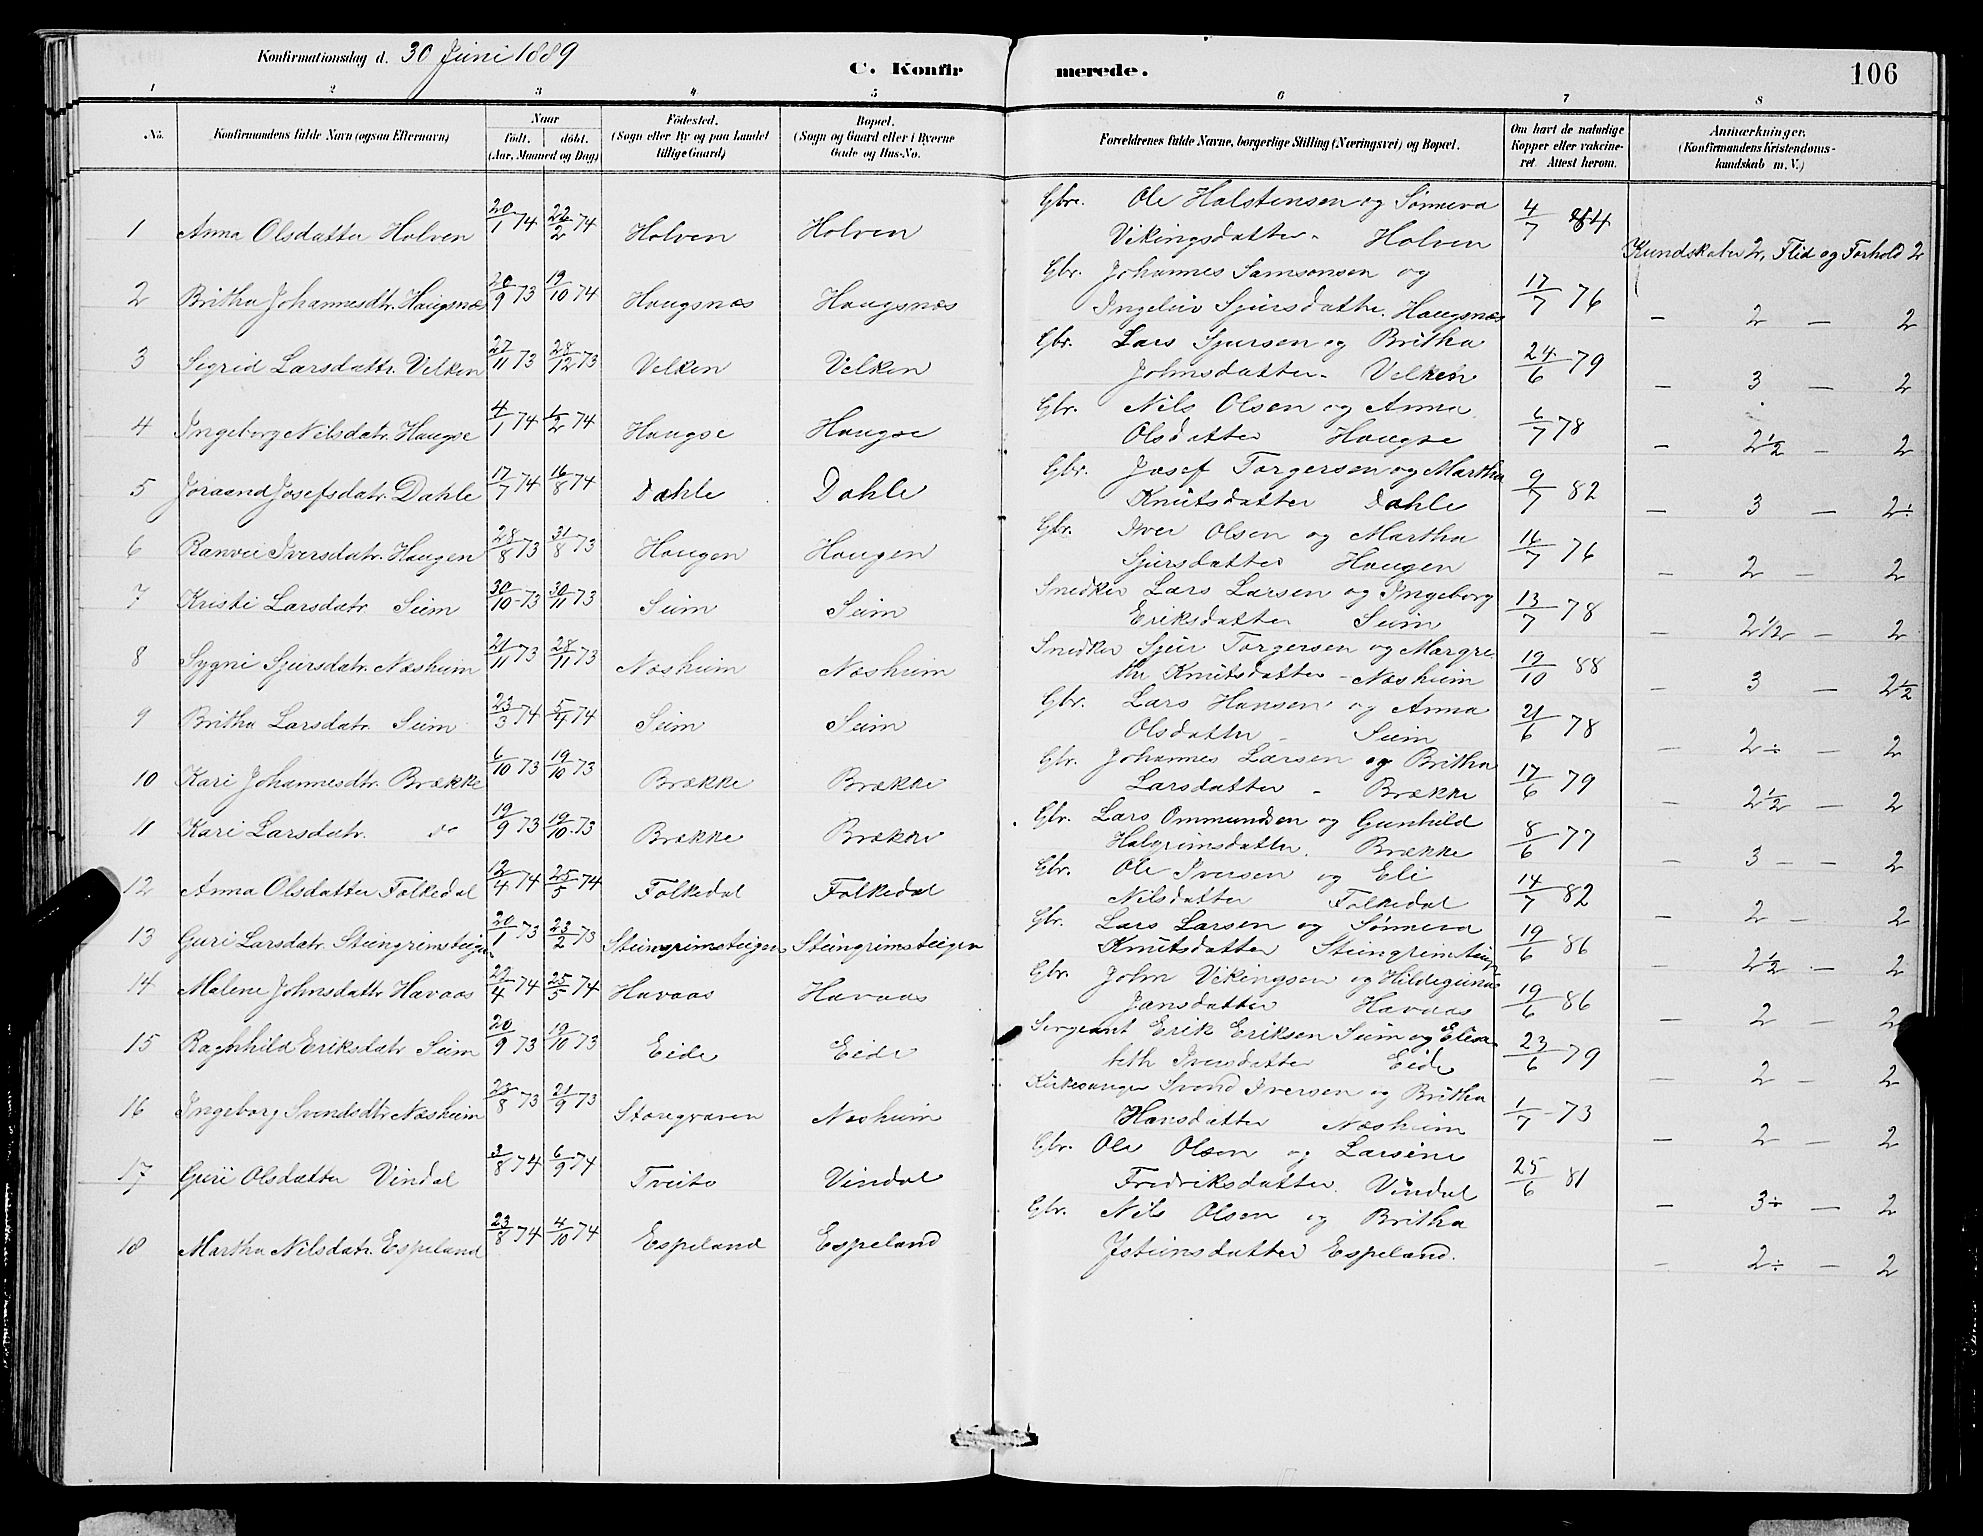 Konfirmationsdag d. 30 Juni 1889
C. Konfirmerede.
106
1 2 3 4 5 6 7 8
No.
Konfirmandens fulde Navn (ogsaa Efternavn)
Naar
født. døbt.
(Aar, Maaned og Dag)
Fødested.
(Sogn eller By og paa Landet
tillige Gaard)
Bopæl.
(Sogn og Gaard eller i Byerne
Gade og Hus-No.
Forældrenes fulde Navne, borgerlige Stilling (Næringsvei) og Bopæl.
Om havt de naturlige
Kopper eller vakcine-
ret. Attest herom.
Anmærkninger.
(Konfirmandens Kristendoms-
kundskab m. V.)
1 Anna Olsdatter Holven 20/1 74 22/2 74 Holven Holven Gbr. Ole Halstensen og Sønneva
Vikingsdatter - Holven 4/7 84 Kundskaber 2, Flid og Forhold 2
2 Britha Johannesdtr. Haugsnæs 20/9 73 19/10 74 Haugsnæs Haugsnæs Gbr. Johannes Samsonsen og
Sjursdatter. Haugsnæs 17/7 76 - 2 - 2
3 Sigrid Larsdattr. Velken 27/11 73 28/12 73 Velken Velken Gbr. Lars Sjursen og Britha
Johnsdatter - Velken 24/6 79 - 3 - 2
4 Ingeborg Nilsdatr. Haugse 4/1 74 1/2 74 Haugse Haugse Gbr. Nils Olsen og Anna
Olsdatter Haugse 6/7 78 - 2 1/2 - 2
5 Josefsdatr. Dahle 17/7 74 16/8 74 Dahle Dahle Gbr. Josef Torgersen og Martha
Knutsdatter Dahle 9/7 82 - 3 - 2÷
6 Ranvei Iversdatr. Haugen 28/8 73 31/8 73 Haugen Haugen Gbr. Iver Olsen og Martha
Sjursdatter Haugen 16/7 76 - 2 - 2
7 Kristi Larsdatr Seim 30/10 - 73 30/11 73 Seim Seim Snedker Lars Larsen og Ingeborg
Eriksdatter Seim 13/7 78 - 2 1/2 - 2
8 Sygni Sjursdatr. Næsheim 21/11 73 28/11 73 Næsheim Næsheim Snedker Sjur Torgersen og Margre
the Knutsdatter - Næsheim 19/10 88 - 3 - 2 1/2
9 Britha Larsdatr. Seim 23/3 74 5/4 74 Seim Seim Gbr. Lars Hansen og Anna
Olsdatter - Seim 21/6 78 - 2÷ - 2
10 Kari Johannesdtr. Brække 6/10 73 19/10 73 Brække Brække Gbr. Johannes Larsen og Britha
Larsdatter - Brække 17/6 79 - 2 1/2 - 2
11 Kari Larsdatr. do 19/9 73 19/10 - 73 Brække Brække Gbr. Lars Ommundsen og Gunhild
Halgrimsdatter. Brække 8/6 77 - 3 - - 2
12 Anna Olsdatter Folkedal 12/4 74 25/5 74 Folkedal Folkedal Gbr. Ole Iversen og Eli
Nilsdatter Folkedal 14/7 82 - 2 - 2
13 Guri Larsdatr. Steingrimsteigen 20/1 73 23/2 73 Steingrimsteigen Steingrimsteigen Gbr. Lars Larsen og Sønneva
Knutsdatter Steingrimsteigen 19/6 86 - 2 1/2 - 2
14 Malene Johnsdattr Havaas 27/4 74 25/5 74 Havaas Havaas Gbr. John Vikingsen og Hildegunna
Jansdatter Havaas 19/6 86 - 2 - 2
15 Raghhild Eriksdatr Seim 20/9 73 19/10 73 Eide Eide Sergeant Erik Eriksen Seim og Elisa-
beth Iversdatter Eide 23/6 79 - 2 - 2
16 Ingeborg Svendsdtr Næsheim /8 73 21/9 73 Storegraven Næsheim Kirkesanger Svend Iversen og Britha
Hansdatter Næsheim 1/7 - 73 - 2 - 2
17 Guri Olsdatter Vindal 3/8 74 6/9 74 Tveito Vindal Gbr. Ole Olsen og Larsine
Fredriksdatter. Vindal 25/6 81 - 3÷ - 2
18 Martha Nilsdatr. Espeland 23/8 74 4/10 74 Espeland Espeland Gbr. Nils Olsen og Britha
Espeland. - 2÷ - 2